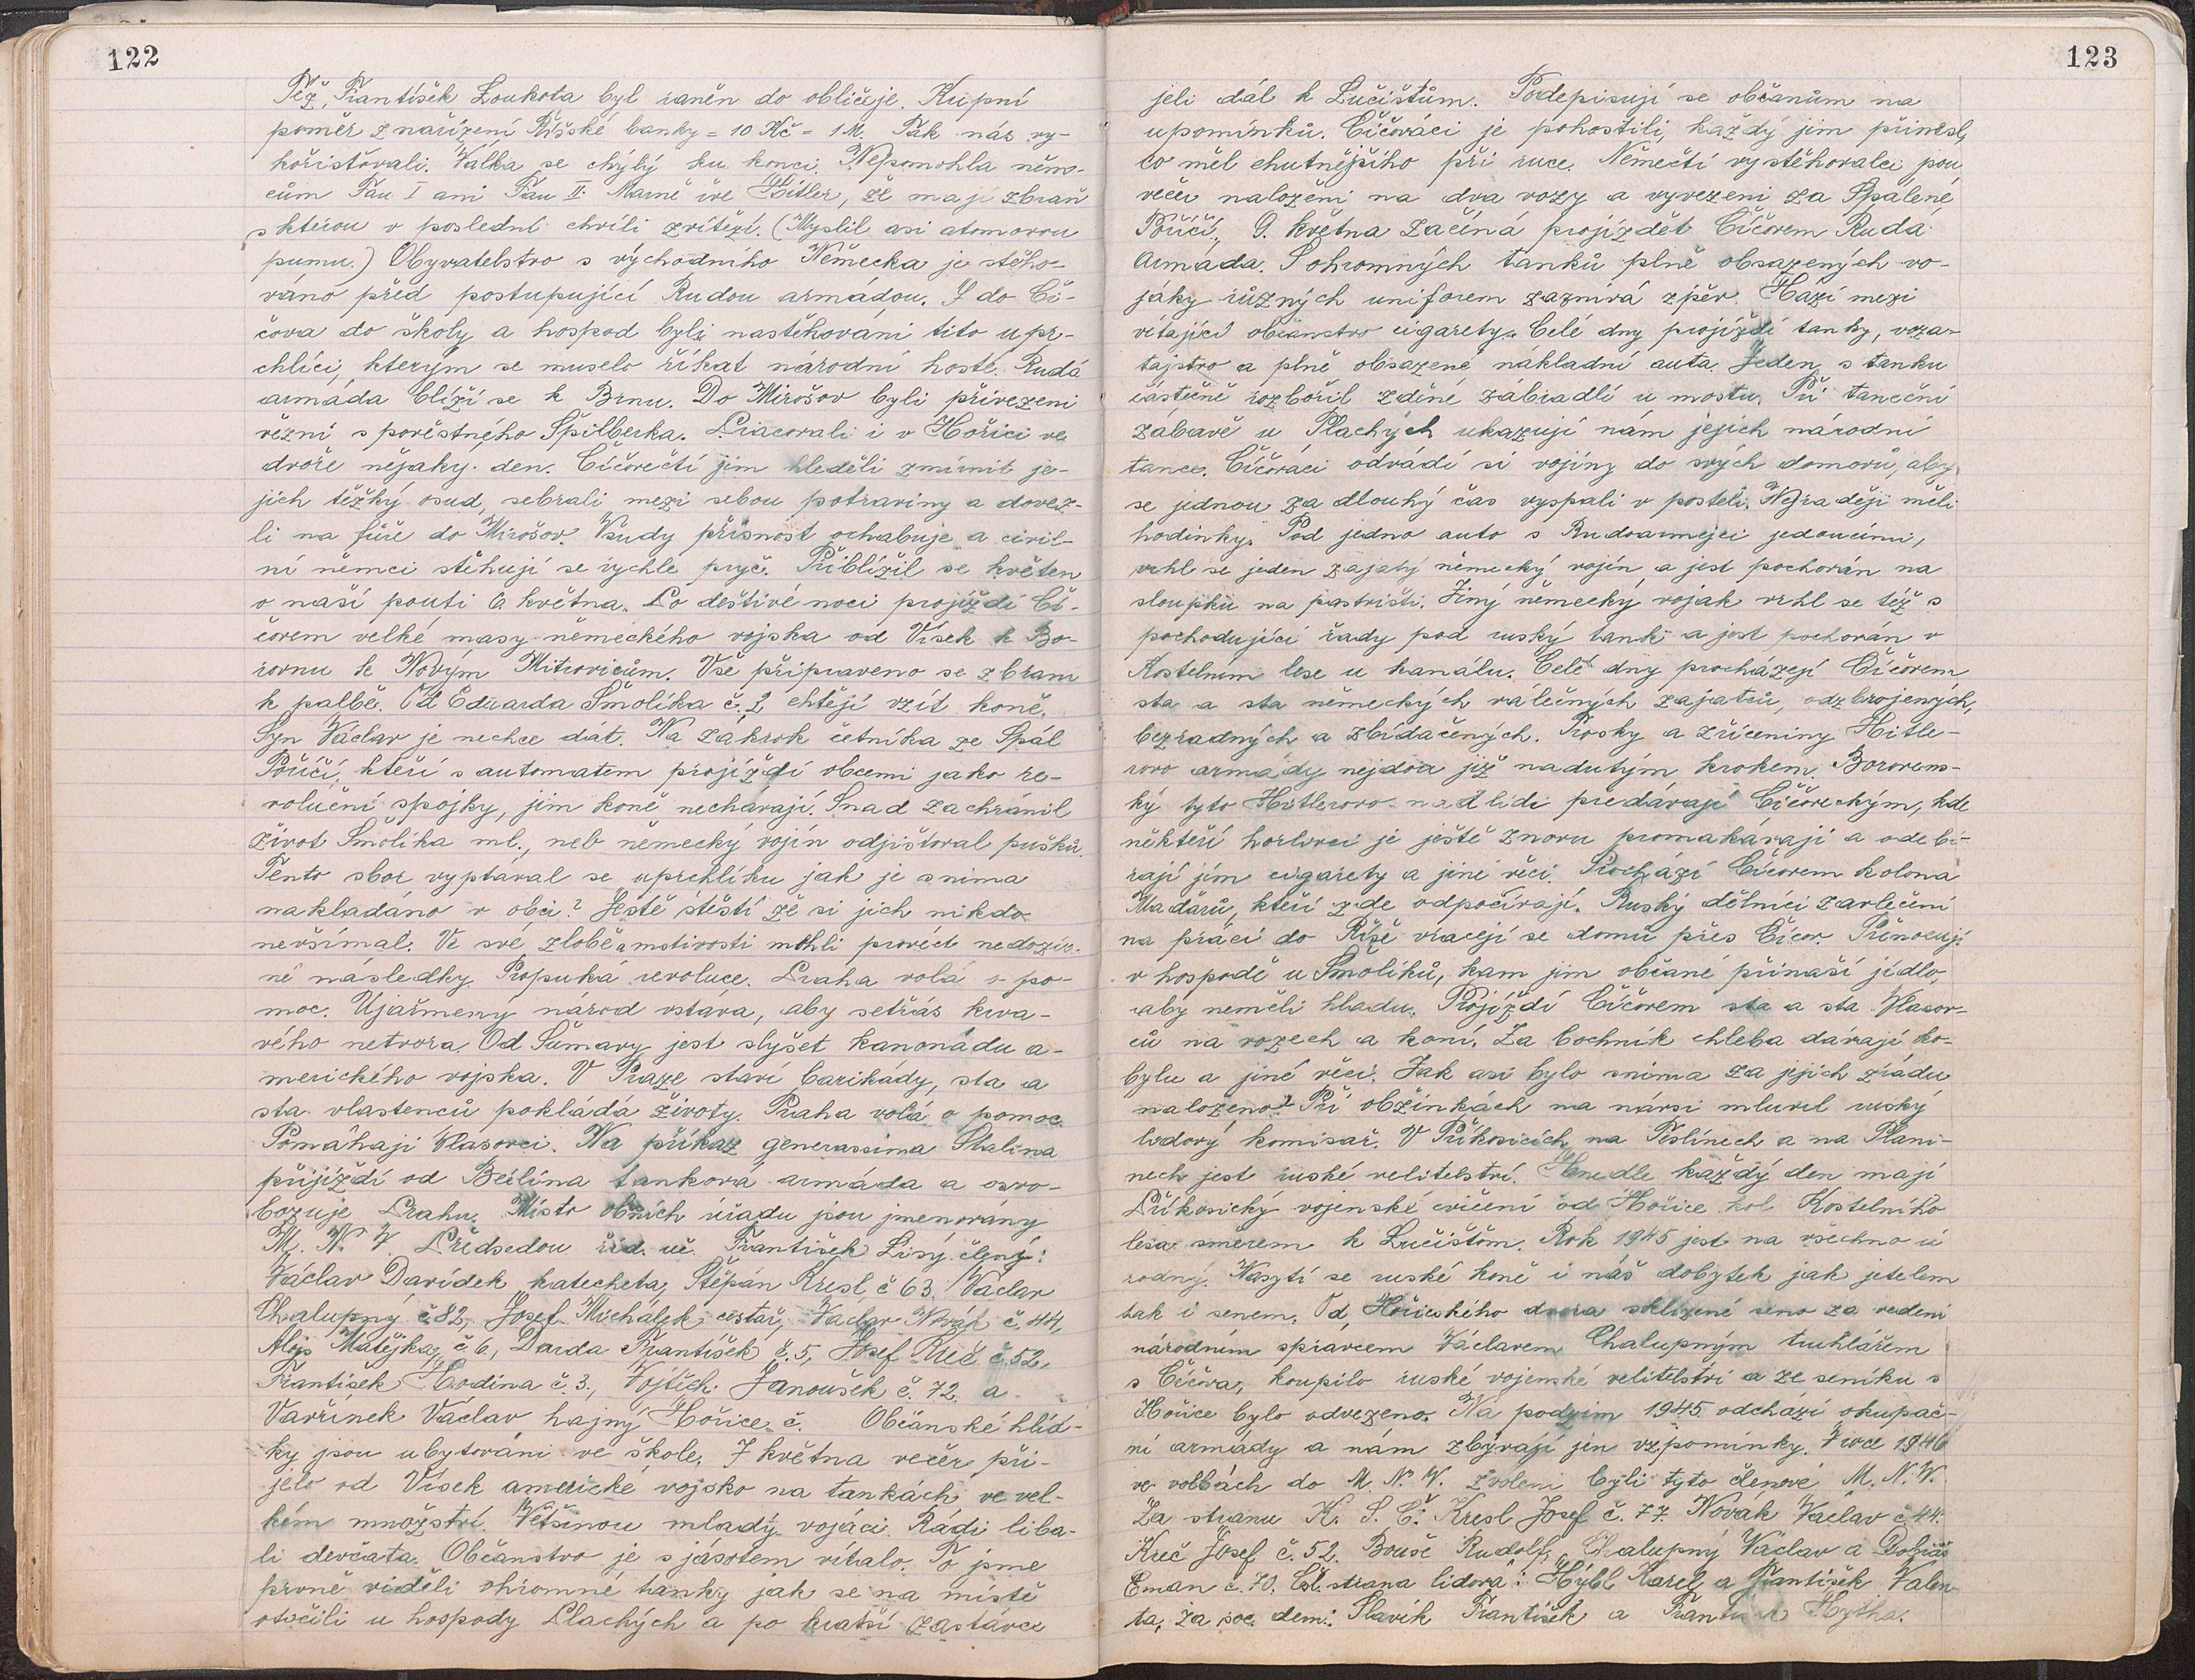 122
Též, František Loukota byl raněn do obličeje. Kupní
poměr z nařízení Říšské banky = 10 Kč = 1 M. Tak nás vy-
kořisťovali. Válka se chýlý ku konci. Nepomohla něm-
cům Fau I ani Fau II. Marně řve Hitler, že mají zbraň
s kterou v poslední chvíli zvítězí. (Myslil asi atomovou
pumu.) Obyvatelstvo s východního Německa je stěho-
váno před postupující Rudou armádou. I do Čí-
čova do školy a hospod byli nastěhováni tito upr-
chlíci, kterým se muselo říkat národní hosté. Rudá
armáda blíží se k Brnu. Do Mirošov byli přivezeni
vězni s pověstného Špilberka. Pracovali i v Hořici ve
dvoře nějaky den. Číčovečtí jim hleděli zmírnit je-
jich těžký osud, sebrali mezi sebou potraviny a dovez-
li na fůře do Mirošov. Všudy přísnost ochabuje a civil-
ní němci stěhují se rychle pryč. Přiblížil se květen
o naší pouti 6 května. Po deštivé noci projíždí Čí-
čovem velké masy německého vojska od Vísek k Bo-
rovnu k Novým Mitrovicům. Vše připraveno se zbraní
k palbě. Od Eduarda Šmolíka č. 2 chtějí vzít koně.
Syn Václav je nechce dát. Na zákrok četníka ze Spál
Poříčí, kteří s automatem projíždějí obcemi jako re-
voluční spojky, jim koně nechávají. Snad zachránil
život Šmolíka ml., neb německý vojín odjišťoval pušku.
Tento sbor vyptával se uprchlíku jak je snima
nakládáno v obci? Ještě štěstí že si jich nikdo
nevšímal. Ve své zlobě a mstivosti mohli provést nedozír-
né následky. Propuká revoluce. Praha volá o po-
moc. Ujařmený národ vstává, aby setřás krva-
vého netvora. Od Šumavy jest slyšet kanonádu a-
merického vojska. V Praze staví barikády, sta a
sta vlastenců pokládá životy. Praha volá o pomoc.
Pomáhají Vlasovci. Na příkaz generassima Stalina
přijíždí od Berlína tanková armáda a osvo-
bozuje Prahu. Místo obních úřadu jsou jmenovány
M. N. V. Předsedou říd. uč. František Lisý. členy:
Václav Davídek katecheta, Štěpán Kresl č 63. Václav
Chalupný č. 82, Josef Michálek cestář, Vaclav Novák č. 44,
Alojs Matějka, č. 6, Darda František č. 5, Josef Kreč č. 52,
František Hodina č. 3., Vojtěch Janoušek č. 72. a
Vavřínek Václav hajný Hořice č. Občanské hlíd-
ky jsou ubytováni ve škole. 7 května večer při-
jelo od Vísek americké vojsko na tankách ve vel-
kém množství. Většinou mladý vojáci. Rádi líba-
li děvčata. Občanstvo je s jásotem vítalo. To jsme
prvně viděli ohromné tanky jak se na místě
otočili u hospody Plachých a po kratší zastávce
123
jeli dál k Lučištům. Podepisují se občanům na
upomínku. Číčováci je pohostili, každý jim přinesl,
co měl chutnějšího při ruce. Němečtí vystěhovalci jsou
večer naloženi na dva vozy a vyvezeni za Spálené
Poříčí. 9. května začíná projíždět Číčovem Rudá
Armáda. S ohromných tanků plně obsazených vo-
jáky různých uniforem zaznívá zpěv. Hází mezi
vítající občanstvo cigarety. Celé dny projíždí tanky, voza-
tajstvo a plně obsazené nákladní auta. Jeden s tanku
částečně rozbořil zděné zábradlí u mostu. Při taneční
zábavě u Plachých ukazují nám jejich národní
tance. Číčováci odvádí si vojíny do svých domovů, aby
se jednou za dlouhý čas vyspali v posteli. Nejraději měli
hodinky. Pod jedno auto s Rudoarmejci jedoucími,
vrhl se jeden zajatý německý vojín a jest pochován na
sloupku na pastvišti. Jiný německý voják vrhl se též s
pochodující řady pod ruský tank a jest pochován v
Kostelním lese u kanálu. Celé dny procházejí Číčovem
sta a sta německých válečných zajatců, odzbrojených,
bezradných a zbídačených. Trosky a zříceniny Hitle-
rovo armády nejdou již nadutým krokem. Borovens-
ký tyto Hitlerovo nadlidi předávají Číčoveckým, kde
někteří horlivci je ještě znovu promakávají a odebí-
rají jim cigarety a jiné věci. Prochází Číčovem kolona
Maďarů, kteří zde odpočívají. Ruský dělníci zavlečení
na práci do Říše vracejí se domů přes Číčov. Přenocují
v hospodě u Šmolíků, kam jim občané přinaší jídlo,
aby neměli hladu. Projíždí Číčovem sta a sta Vlasov-
ců na vozech a koní. Za bochník chleba dávají ko-
bylu a jiné věci. Jak asi bylo snima za jejich zradu
naloženo? Při obžínkách na návsi mluvil ruský
lidový komisař. V Příkosicích, na Teslínech a na Plani-
nech jest ruské velitelství. Henedle každý den mají
Příkosický vojenské cvičení od Hořice kol Kostelního
lesa směrem k Lučištům. Rok 1945 jest na všechno ú
rodný. Nasytí se ruské koně i náš dobytek jak jetelem
tak i senem. Od Hořického dvora sklizené seno za vedení
národním správcem Václavem Chalupným truhlářem
s Číčova, koupilo ruské vojenské velitelství a ze seníku s
Hořice bylo odvezeno. Na podzim 1945 odchází okupač-
ní armády a nám zbývají jen vzpomínky. V roce 1946
ve volbách do M. N. V. zvoleni byli tyto členové M. N. V.
Za stranu K. S. Č. Kresl Josef č. 77 Novák Vaclav č. 44.
Kreč Josef č. 52. Bouše Rudolf, Chalupný Václav a Dobiáš
Eman č. 70. Čsl. strana lidová: Hýbl Karel a František Valen
ta, za soc. dem.: Slavík František a František Hytha.